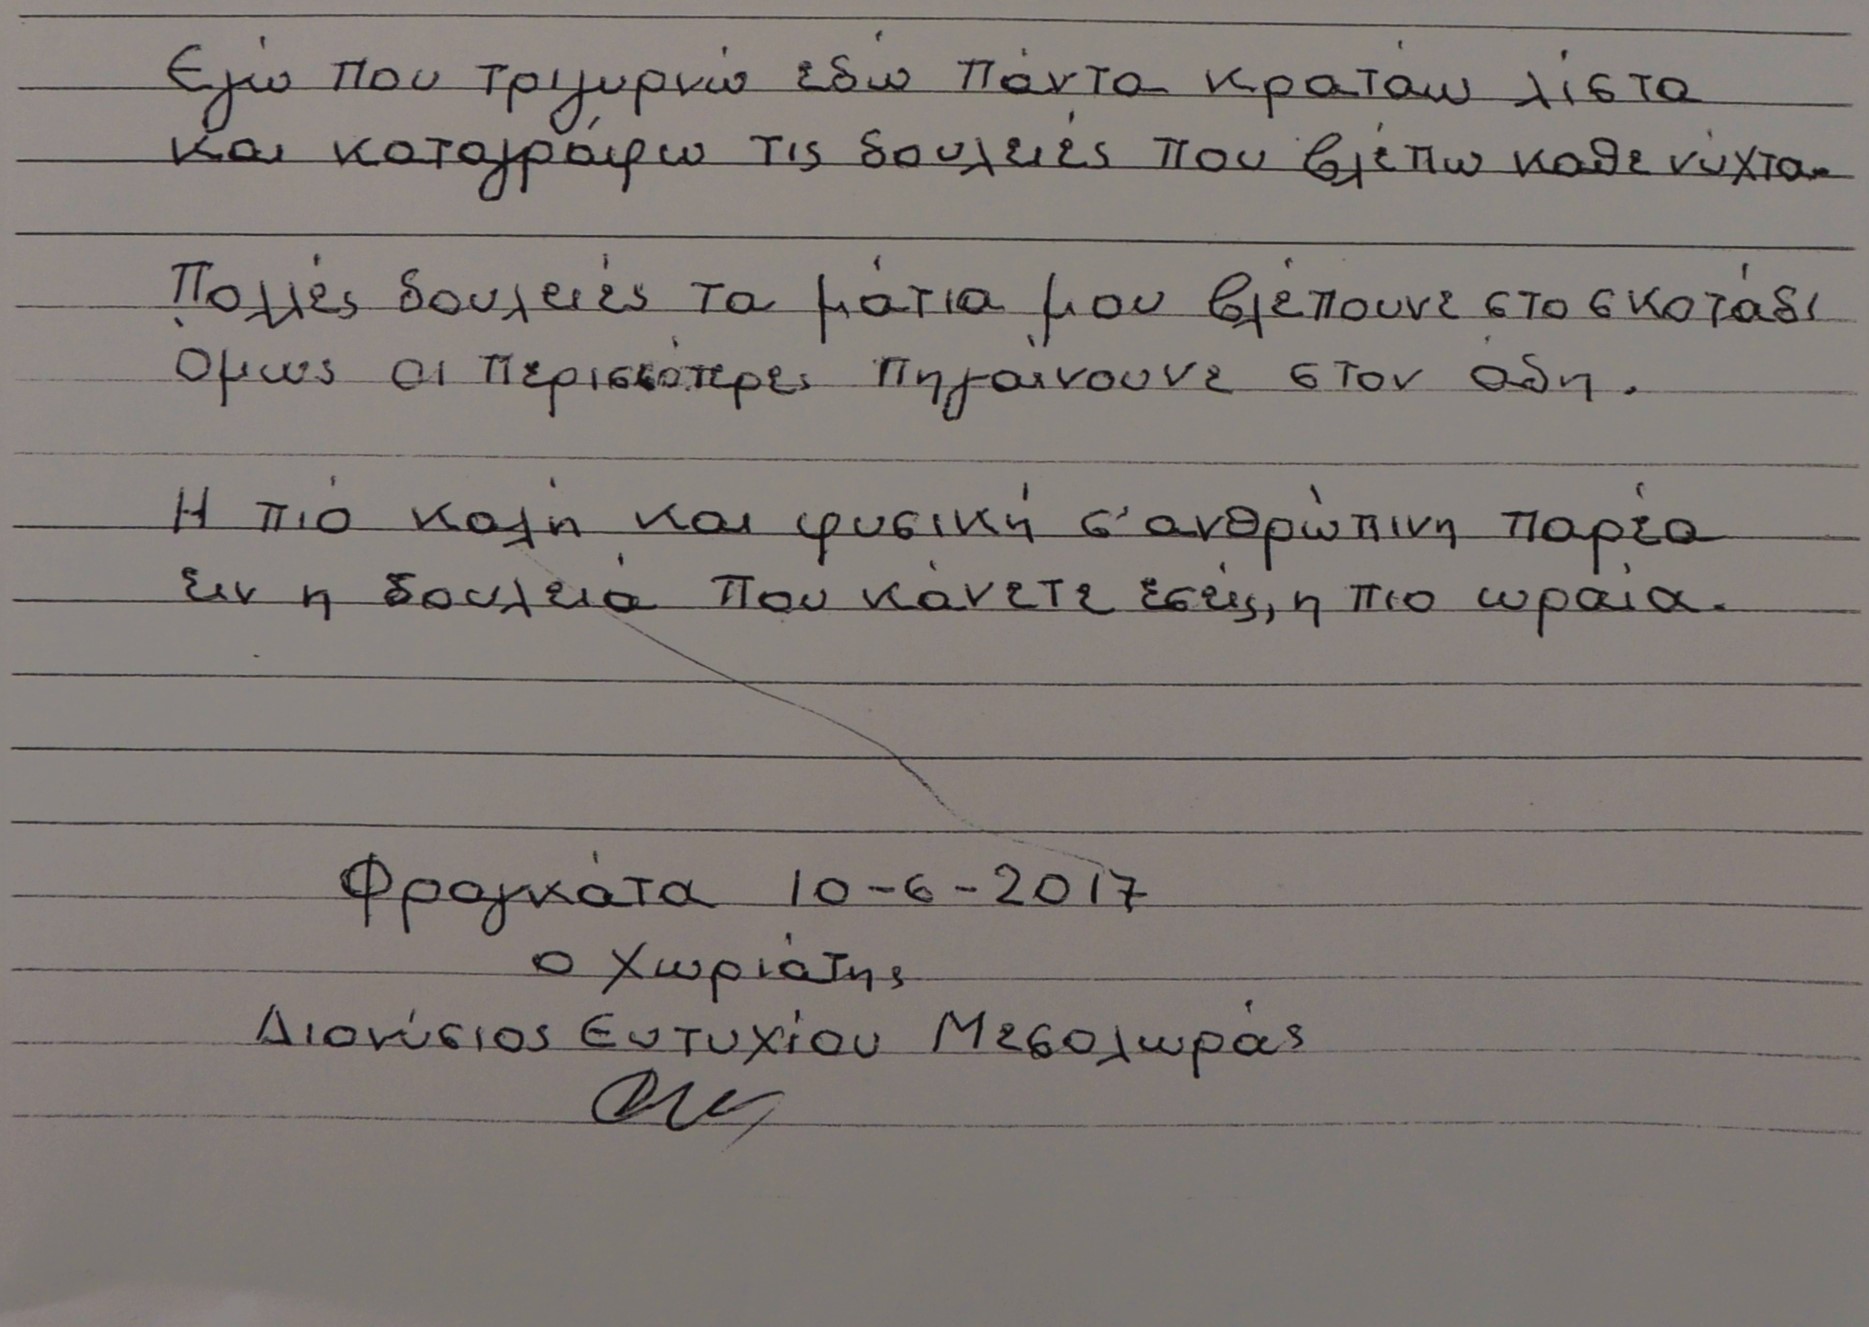 Εγώ που τριγυρνώ εδώ πάντα κρατάω λίστα
και καταγράφω τις δουλειές που βλέπω καθε νύχτα
Πολλές δουλειές τα μάτια μου βλέπουνε στο σκοτάδι
Όμως οι περισσότερες πηγαίνουνε στον άδη.
Η πιό καλή και φυσική σ' ανθρώπινη παρέα
ειν η δουλειά που κάνετε εσείς, η πιο ωραία.
Φραγκάτα 10-6-2017
ο χωριάτης
Διονύσιος Ευτυχίου Μεσολωράς